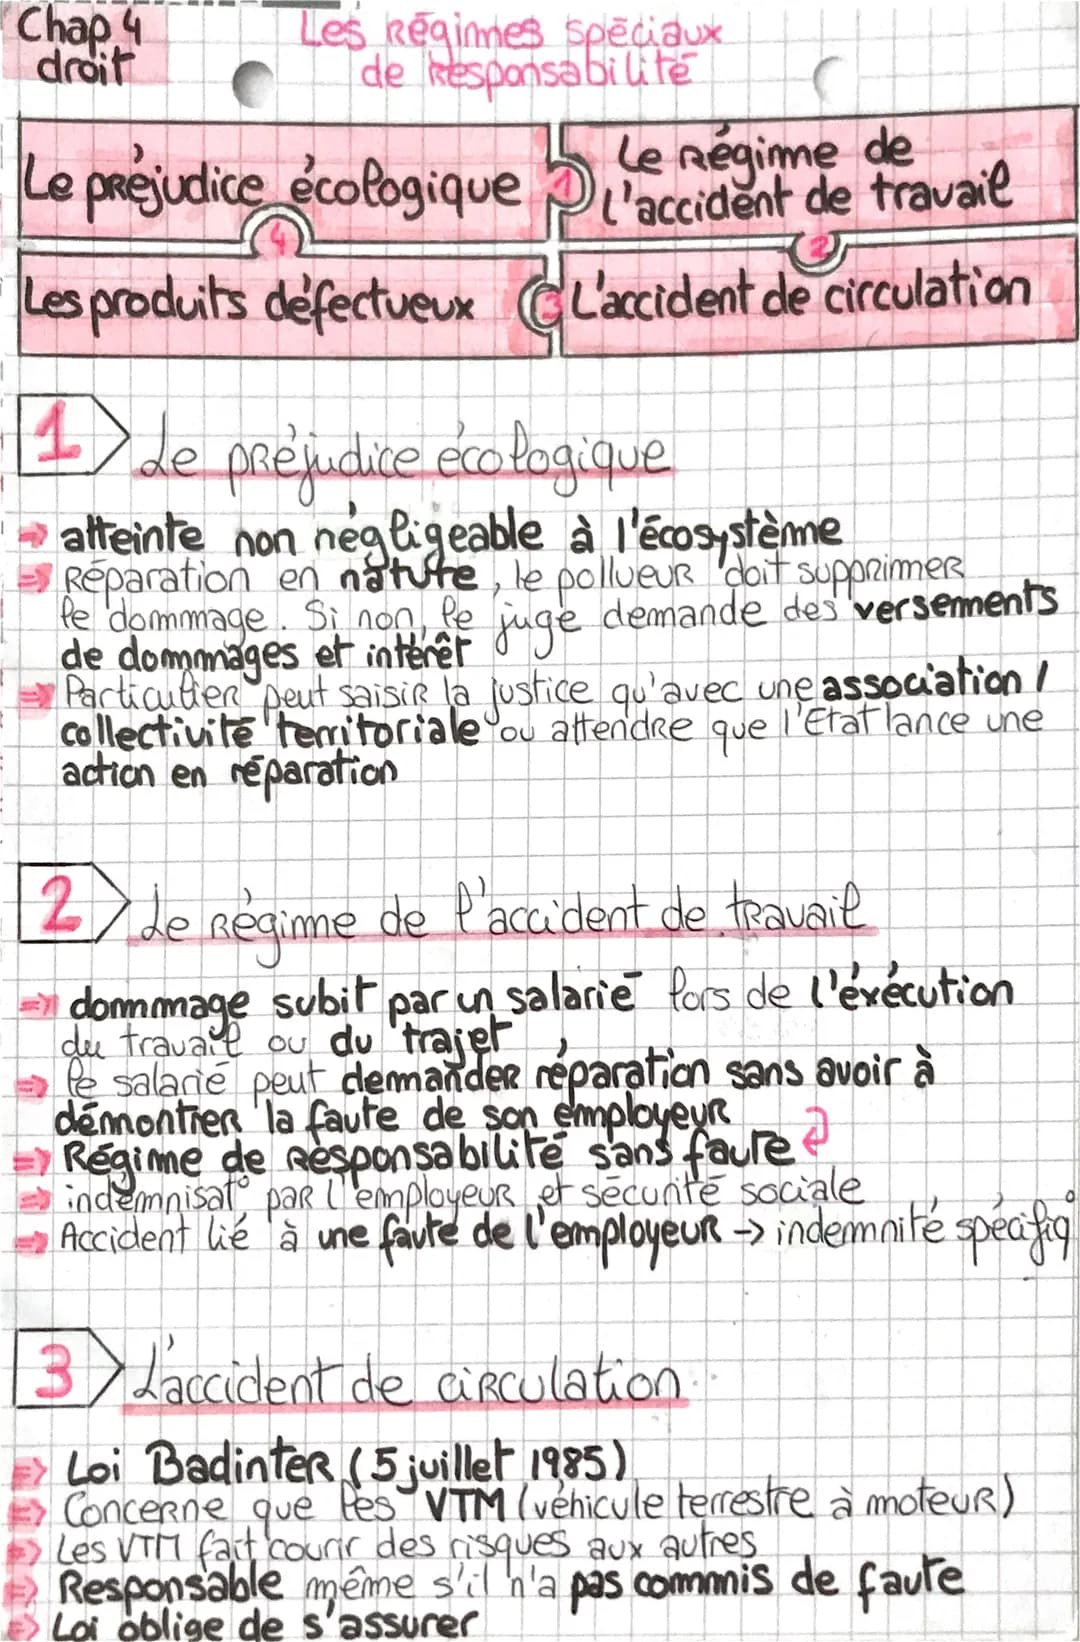 Chap 4
droit
Les Régimes spéciaux
de Responsabilité
Le préjudice écologique
1
Le Régime de
l'accident de travail
4
2
Les produits défectueux
3
L'accident de circulation
1 Le préjudice écologique
⇒ atteinte non négligeable à l'écosystème
⇒ Réparation en nature, le pollueur doit supprimer
le dommage. Si non, le juge demande des versements
de dommages et intérêt
⇒ Particulier peut saisir la justice qu'avec une association /
collectivité territoriale ou attendre que l'Etat lance une
action en réparation
2 Le Régime de l'accident de travail
⇒ dommage subit par un salarié lors de l'éxécution
du travail ou du trajet
⇒ le salarié peut demander réparation sans avoir à
démontrer la faute de son employeur
⇒ Régime de Responsabilité sans faute
⇒ indemnisat° par l'employeur et sécurité sociale
⇒ Accident lié à une faute de l'employeur → indemnité spécifiq°
3 L'accident de circulation
⇒ Loi Badinter (5 juillet 1985)
⇒ Concerne que les VTM (véhicule terrestre à moteur)
⇒ Les VTM fait courir des risques aux autres
⇒ Responsable même s'il n'a pas commis de faute
⇒ Loi oblige de s'assurer